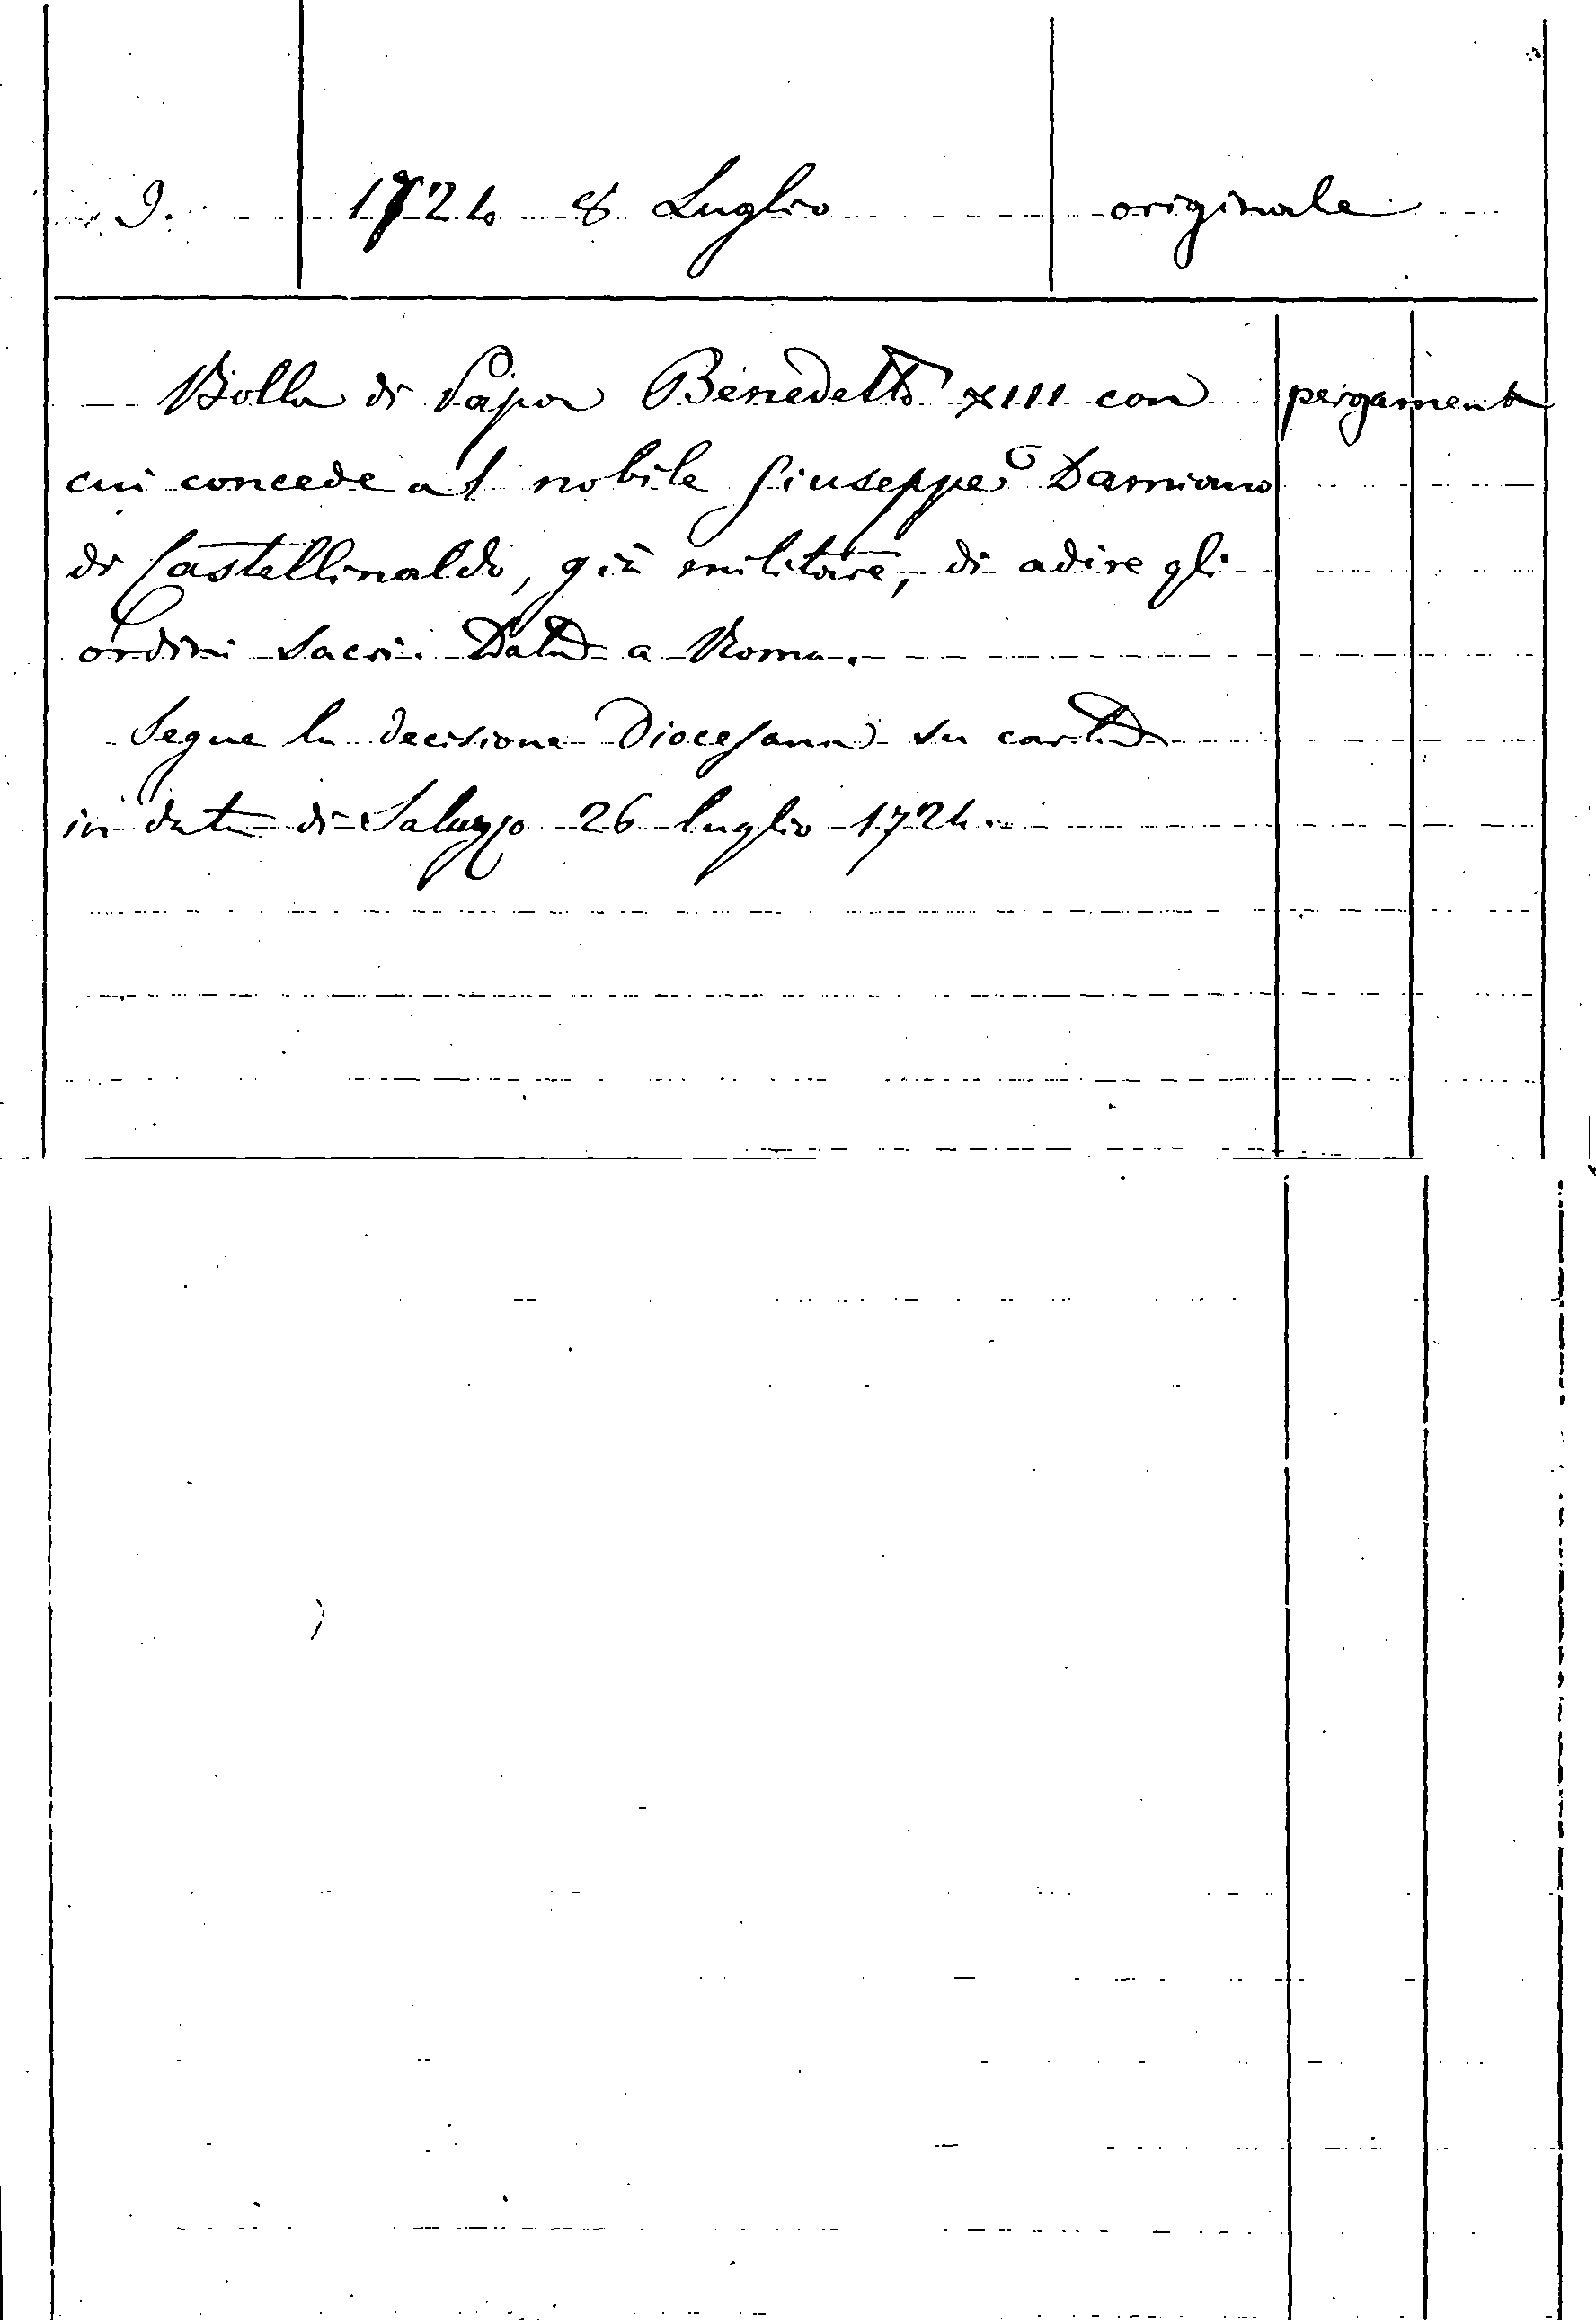 9. 1724 8 Luglio originale
Bolla di Papa Benedetto XIII con pergamena
cui concede al nobile Giuseppe Damiano
di Castellinaldo, già militare, di adire gli
ordini sacri. Data a Roma.
Segue la decisione Diocesana su carta
in data di Saluzzo 26 luglio 1724.